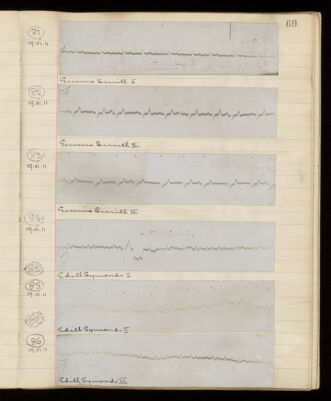 69
81
19.VI.11
Emma Smith I
82
19.VI.11
Emma Smith II
83
19.VI.11
Emma Smith III
84
19.VI.11
Edith Symonds I
85
19.VI.11
Edith Symonds II
86
19.VI.11
Edith Symonds III